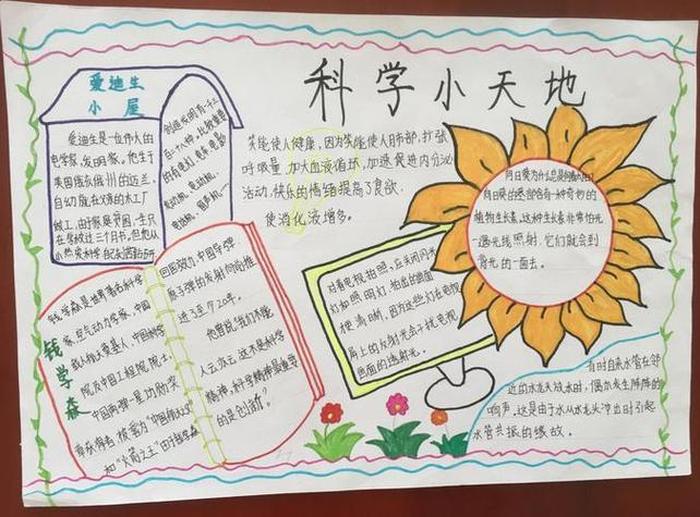 科学小天地
爱迪生
小屋
爱迪生是一位伟大的
电学家,发明家。他生于
美国俄亥俄州的迈兰,
自幼就在父亲的木工厂
做工,由于家庭贫困,生只
在学校过三个月书,但他从小
热爱科学
创造发明有一千二
百二十八种,比较重要
的有电灯,电车,电影
发电机,电动机,
电话机,留声机…
笑能使人健康,因为笑能使人胸部,扩张
呼吸量,加大血液循环,加速促进内分泌
活动,快乐的情绪提高了食欲,
使消化液增多。
向日葵的茎部含有一种奇妙的
植物生长素,这种生长素非常怕光
一遇光线照射,它们就会到
背光的一面去。
钱学森
钱学森是世界著名科学
家,空气动力学家,中国
载人航天奠基人,中国科学
院及中国工程院院士,
中国两弹一星功勋奖
章获得者,被誉为
和“火箭之王”由于钱学森
回国效力,中国导弹、
原子弹的发射向前推
进了至少20年。
他曾说“我们不能
人云亦云,这不是科学
精神,科学精神最重要
的是创新”。
对着电视拍照,应关闭闪光
灯和照明灯,拍出的画面
更清晰,因为这些灯在电视
屏上的反射光会干扰电视
画面的透射光。
有时自来水管在邻
近的水龙头放水时,偶尔发生阵阵的
响声,这是由于水从水龙头冲出时引起
水管共振的缘故。